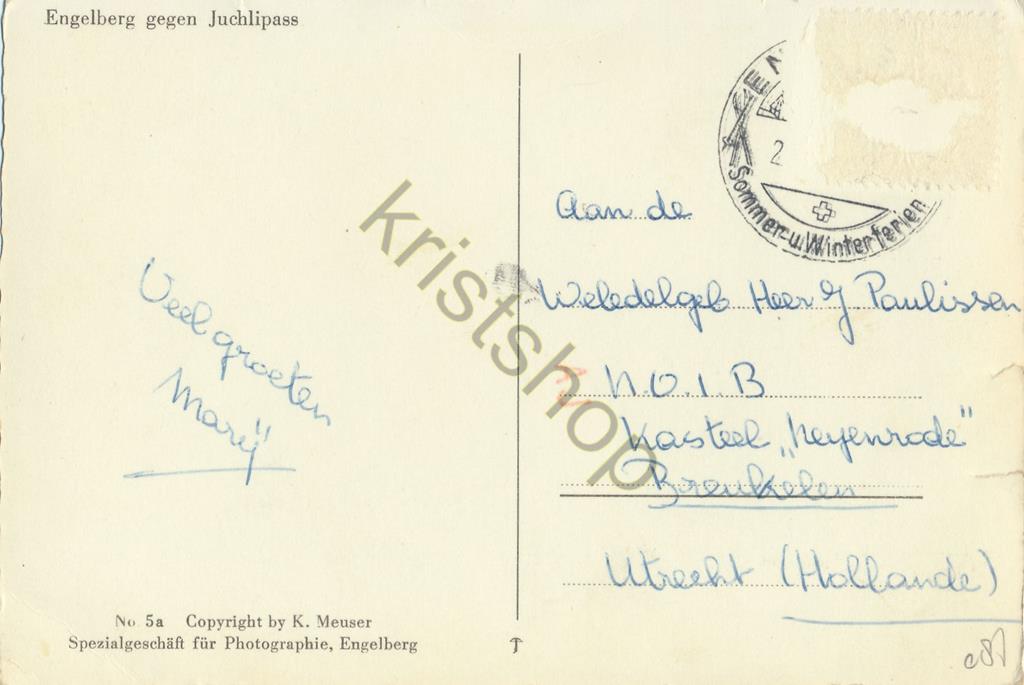 Engelberg gegen Juchlipass
Veel groeten
Marÿ
No 5a Copyright by K. Meuser
Spezialgeschäft für Photographie, Engelberg
2
Sommer-u.Winterferien
Aan de
Weledelgeb Heer J Paulissen
N.O.I.B
Kasteel „Neyenrode"
Breukelen
Utrecht (Hollande)
kristshop